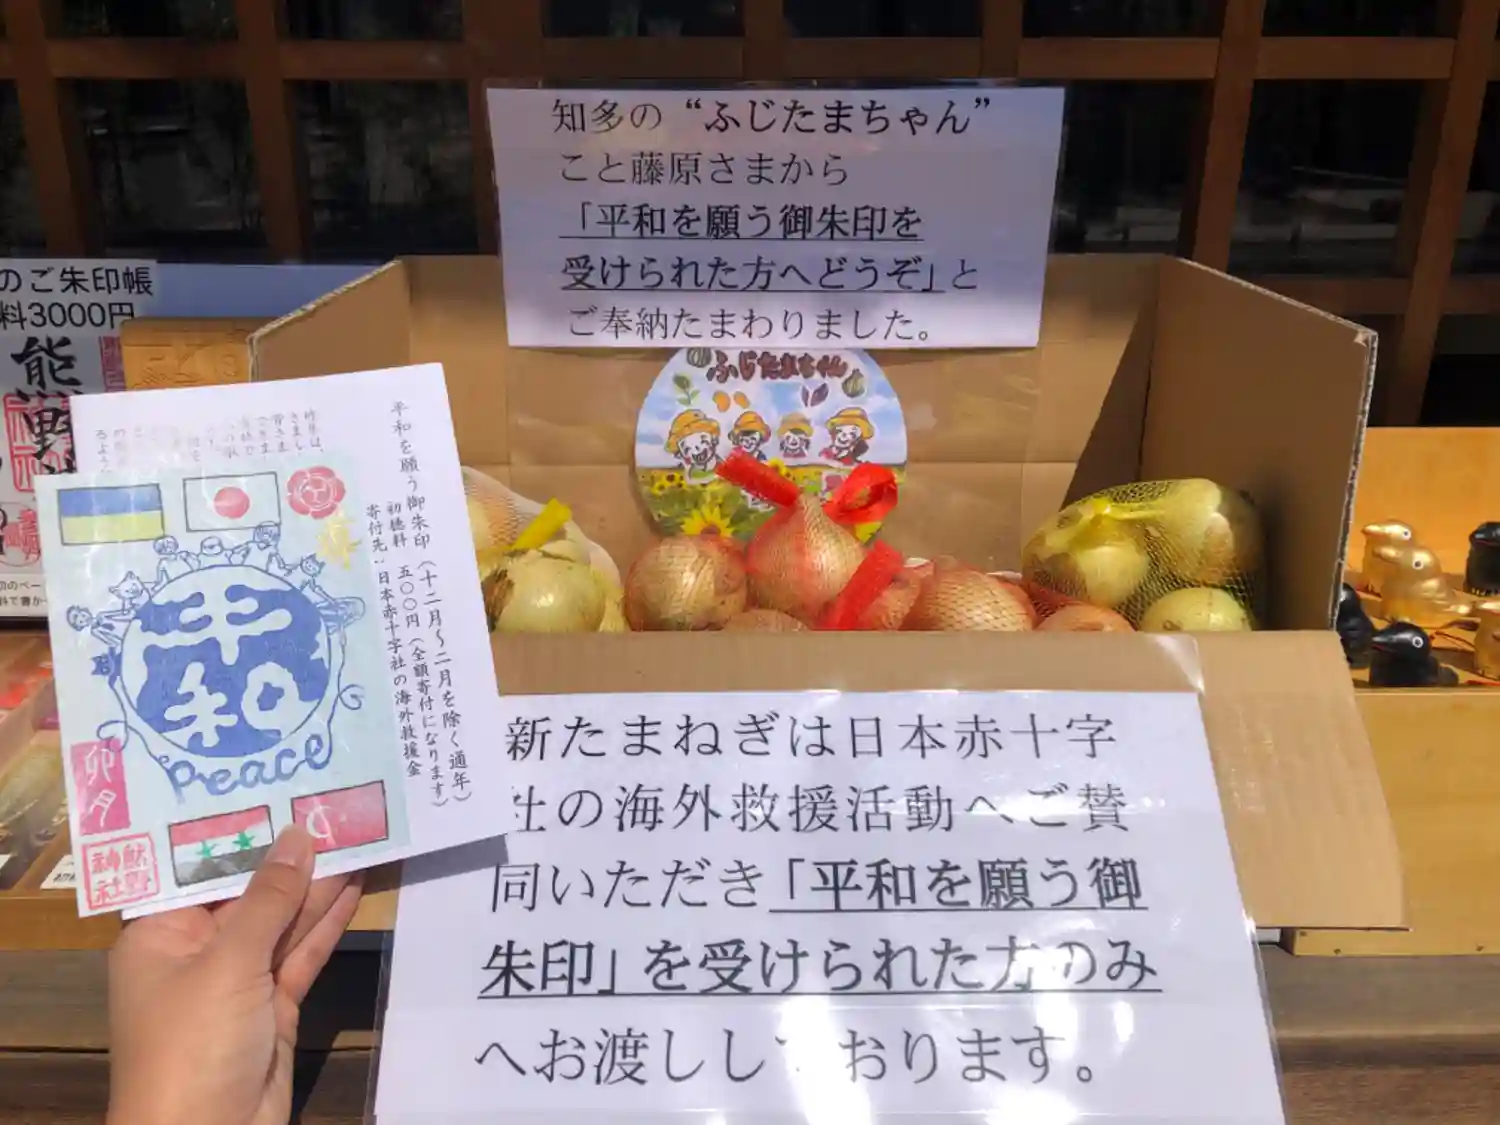 知多の“ふじたまちゃん”
こと藤原さまから
「平和を願う御朱印を
受けられた方へどうぞ」と
ご奉納たまわりました。
のご朱印帳
料3000円
熊野
ふじたまちゃん
平和を願う御朱印(十二月~二月を除く通年)
初穂料 五〇〇円(全額寄付になります)
寄付先:日本赤十字社の海外救援金
平和
Peace
卯月
熊野
神社
新たまねぎは日本赤十字
社の海外救援活動へご賛
同いただき「平和を願う御
朱印」を受けられた方のみ
へお渡ししております。